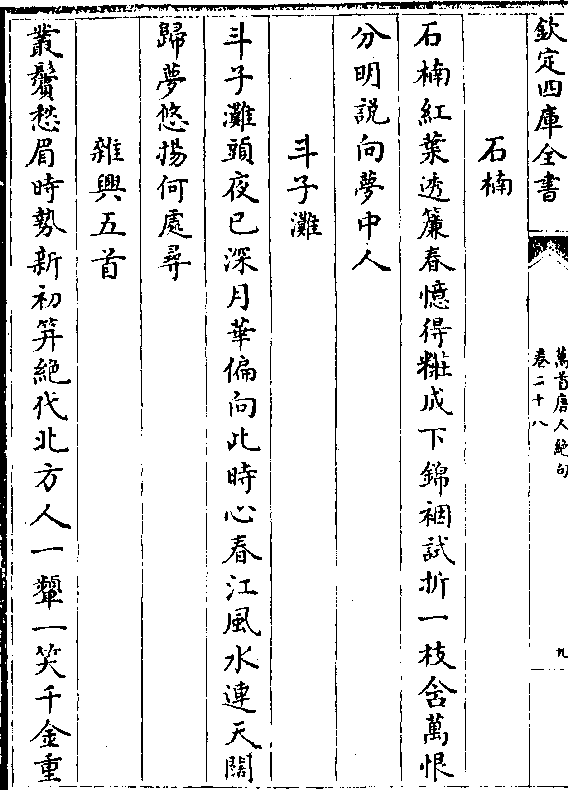 欽定四庫全書
萬首唐人絶句
卷二十八
九
石楠
石楠紅葉透簾春憶得粧成下錦裀試折一枝含萬恨
分明説向夢中人
斗子灘
斗子灘頭夜已深月華偏向此時心春江風水連天闊
歸夢悠揚何處尋
雜興五首
叢鬢愁眉時勢新初筓絶代北方人一顰一笑千金重